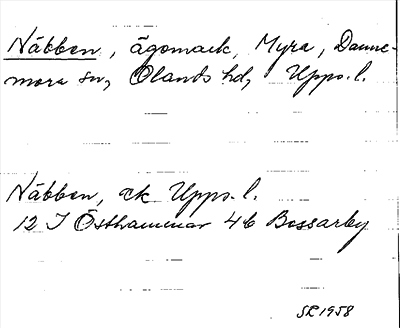 Näbben, ägomark, Myra, Danne-
mora sn, Olands hd, Upps. l.
Näbben, ek Upps. l.
12 I Östhammar 4b Bossarby
SR 1958